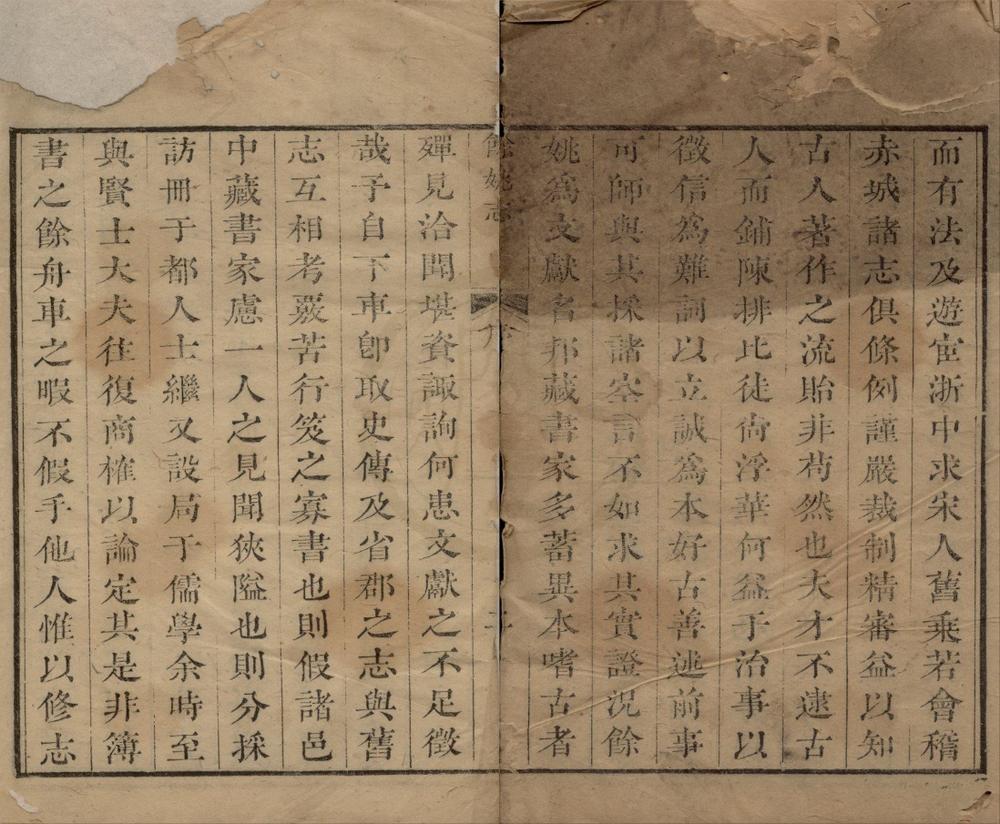 而有法及遊宦浙中求宋人舊乘若會稽
赤城諸志俱條例謹嚴裁制精審益以知
古人著作之流貽非苟然也夫才不逮古
人而鋪陳排比徒尙浮華何益于治事以
徵信爲難詞以立誠爲本好古善述前事
可師與其採諸空言不如求其實證況餘
姚爲文獻名邦藏書家多蓄異本嗜古者
餘姚志
序
二
殫見洽聞堪資諏詢何患文獻之不足徵
哉予自下車卽取史傳及省郡之志與舊
志互相考覈苦行笈之寡書也則假諸邑
中藏書家慮一人之見聞狹隘也則分採
訪冊于都人士繼又設局于儒學余時至
與賢士大夫往復商榷以論定其是非簿
書之餘舟車之暇不假手他人惟以修志